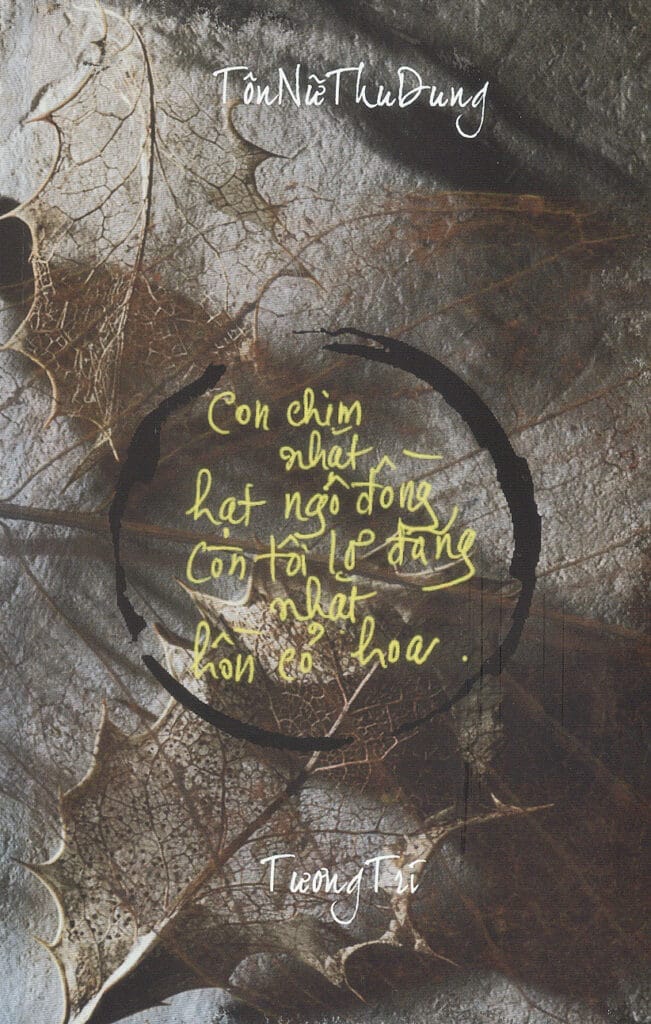 TônNữThuDung
Con chim
nhặt
hạt ngô đồng,
còn tôi lơ đãng
nhặt
hồn cỏ hoa.
TươngTrí